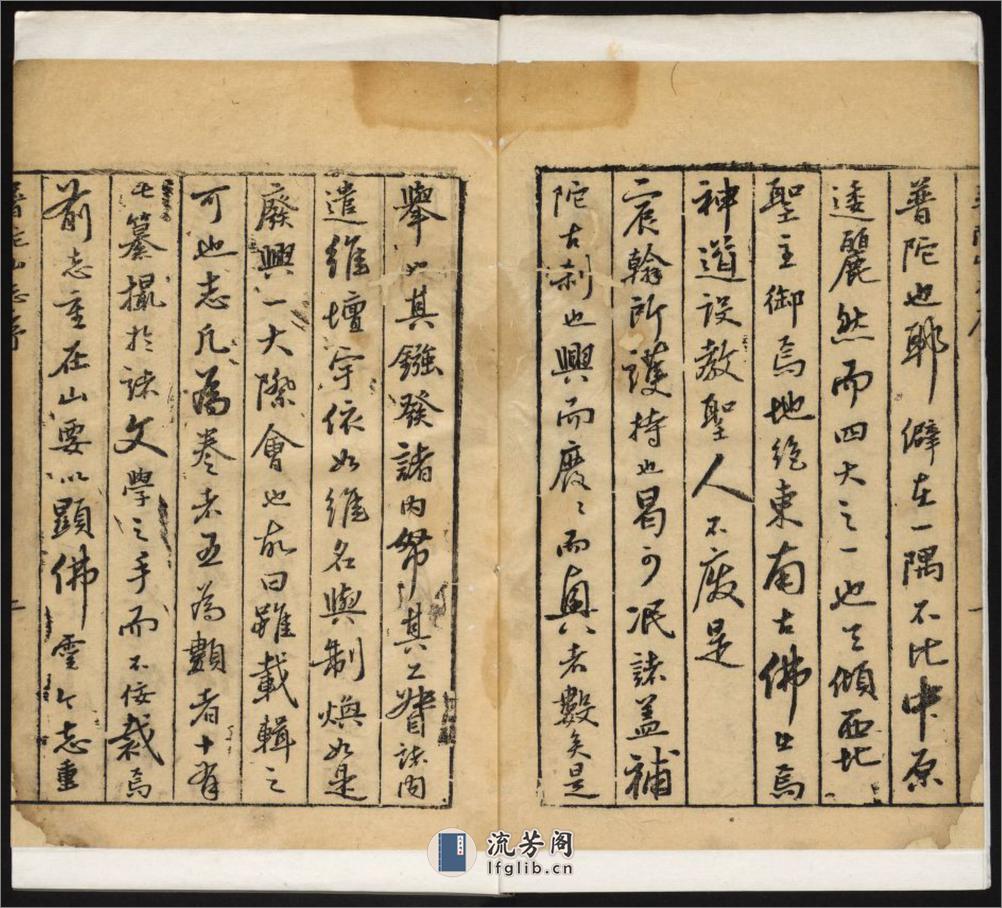 普陀也耶僻在一隅不比中原
逶麗然而四大之一也天傾西北
聖主御焉地絶東南古佛出焉
神道設教聖人不廢是
宸翰所護持也曷可泯諸蓋補
陀古刹也興而廢廢而興者數矣是
舉也其鏹發諸内帑其工督諸内
遣維壇宇依如維名與制煥如是
廢興一大際會也故曰雖載輯之
可也志凡為卷者五為類者十有
七纂攝於諸文學之手而不佞裁焉
前志重在山要以顯佛靈今志重
流芳阁
lfglib.cn